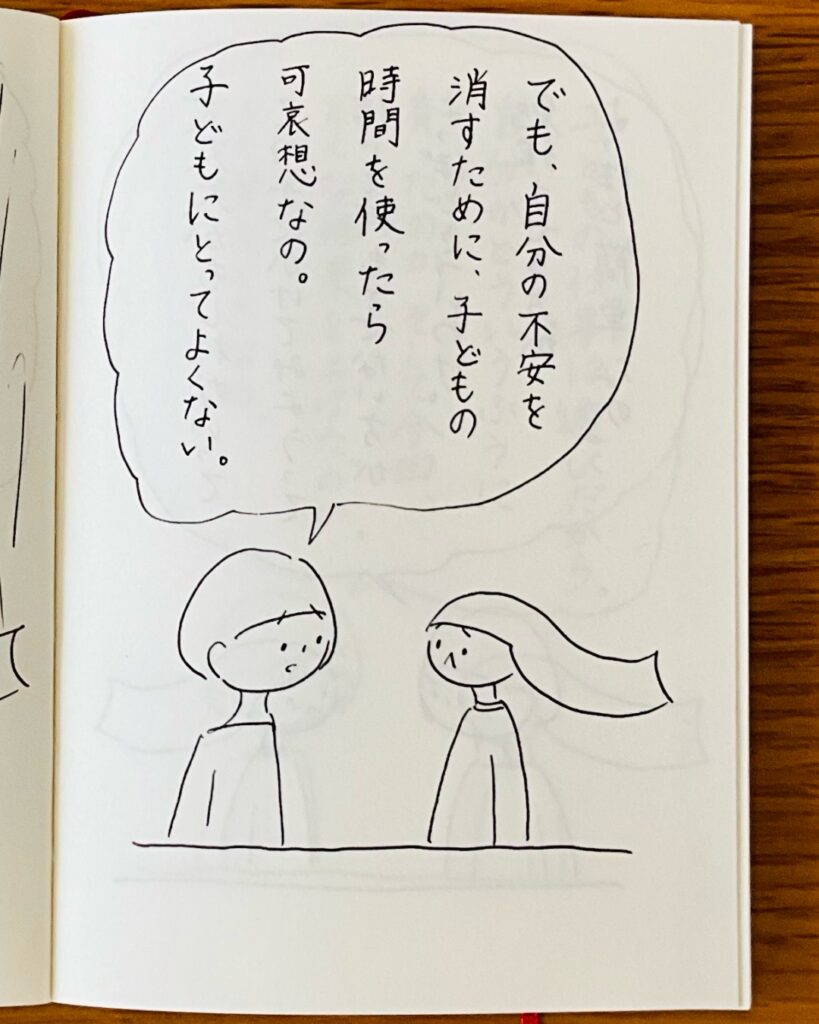 でも、自分の不安を
消すために、子どもの
時間を使ったら
可哀想なの。
子どもにとってよくない。